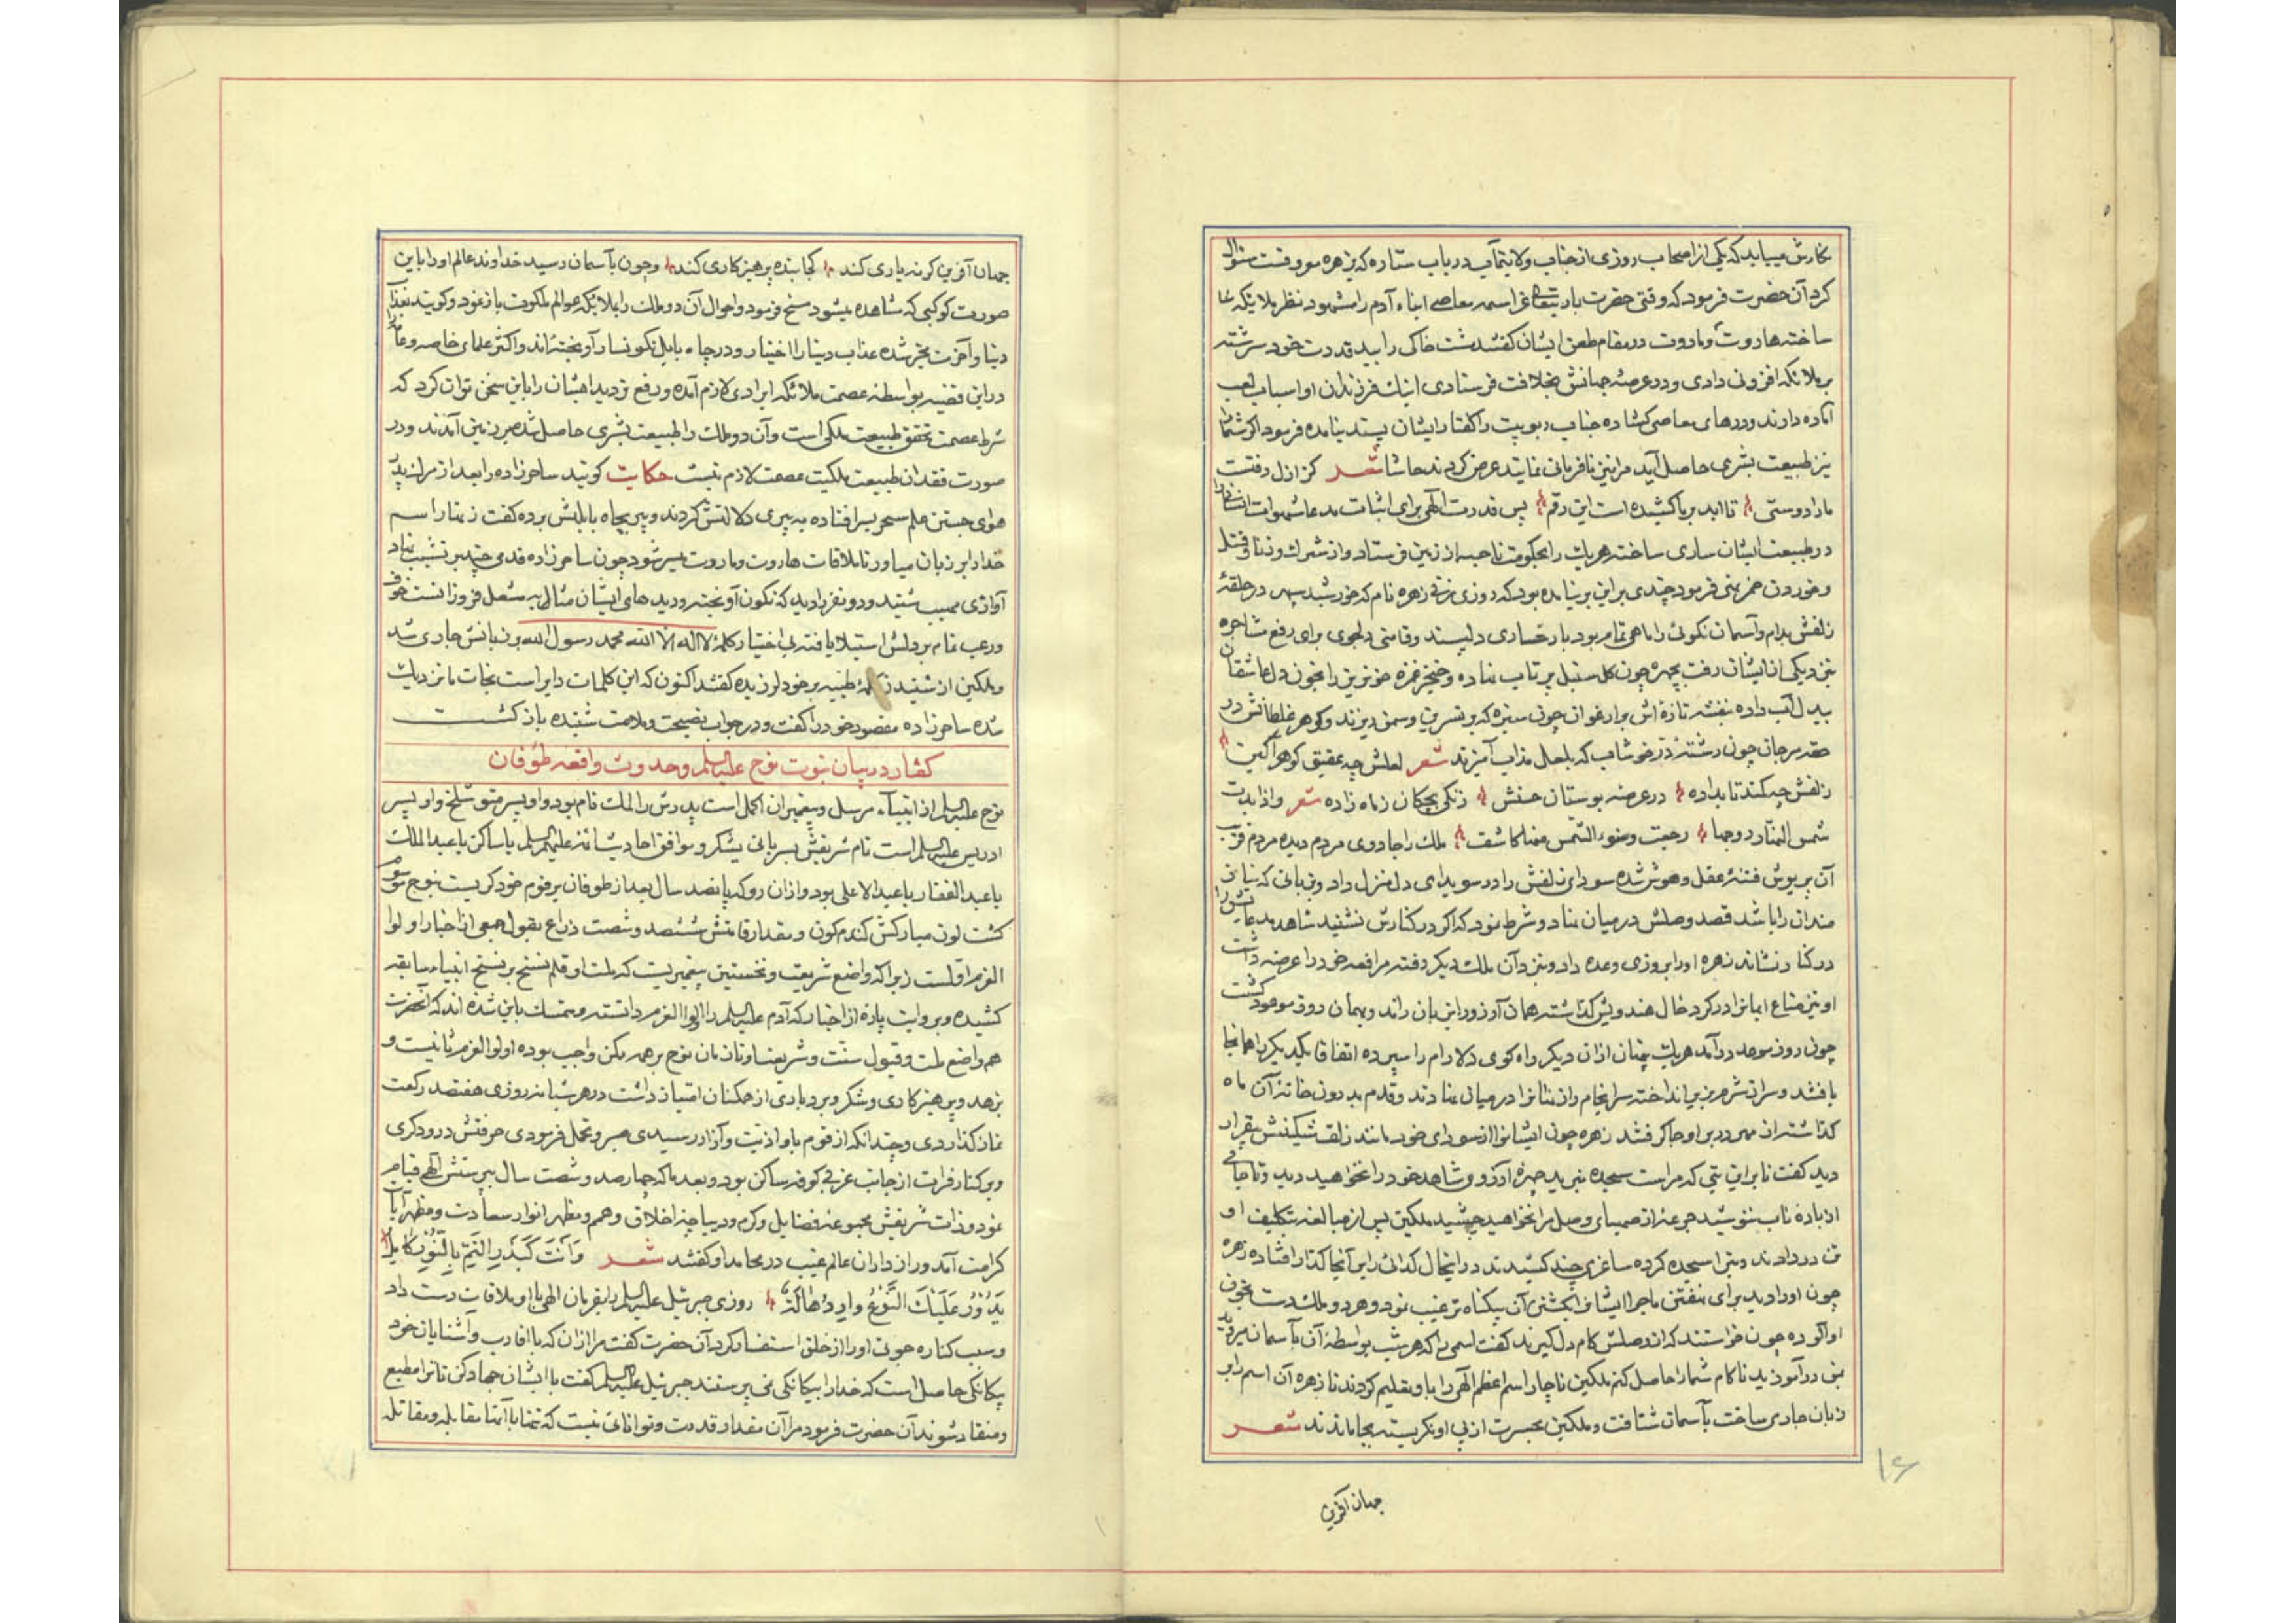 نکارش میباید که یکی از اصحاب روزی از جناب ولایتمآب در باب ستاره که بزهره موروفست سئوال
کرد آن حضرت فرمود که وقتی حضرت باریتعالی عز اسمه معاصی ابناء آدم را مشهود نظر ملایکه
ساخته هاروت و ماروت در مقام طعن ایشان کفتند مشت خاکی را بید قدرت خود سرشته
بر ملائکه افزونی دادی و در عرصهٔ جهانش بخلافت فرستادی اینک فرزندان او اسباب لعب
آماده دارند و درهای معاصی کشاده جناب ربوبیت را کفتار ایشان پسندیده نیامده فرمود اکر شما را
نیز طبیعت بشری حاصل آید مرا نیز نافرمانی نمایند عرض کردند حاشا شعر کز ازل رفتست
ما را دوستی تا ابد بر ما کشیده است این رقم پس قدرت الهی برای اثبات مدعا شهوات انسانی را
در طبیعت ایشان ساری ساخته هر یک را بحکومت ناحیه از زمین فرستاد و از شرک و زنا و قتل
و خوردن خمر نهی فرمود چندی بر این بر نیامده بود که روزی زنی زهره نام که خورشید سپهر در حلقهٔ
زلفش بدام و آسمان نکوئی را ماهی تمام بود با رخساری دلپسند و قامتی دلجوی برای رفع مشاجره
بنزد یکی از ایشان رفت بچهره چون کل سنبل پر تاب نهاده و خنجر غمزه خونریز را بخون دل عاشقان
بیدل آب داده بنفشه تازه اش بر ارغوان چون سبزه که بر نسرین و سمن ریزند و کوهر غلطانش در
حقه مرجان چون رشتهٔ در خوشاب که بلعل مذاب آمیزند شعر لعلش چه عقیق کوهر آکین
زلفش چه کمند تاب داده در عرصه بوستان حسنش زنکی بچکان ز ماه زاده شعر و اذا بدت
شمس النهار و وجهها رجعت و ضوء الشمس ملک را جادوی مردم دیده مردم فریب
آن پریوش فتنهٔ عقل و هوش شده سودای زلفش را در سویدای دل منزل داد و بزبانی که نیاز
مندان را باشد قصد وصلش در میان نهاد و شرط نمود که اکر در کنارش نشیند شاهد مدعایش را
در کنار نشاند زهره او را بروزی وعده داد و نزد آن ملک دیکر رفته مرافعه خود را عرضه داشت
او نیز متاع ایمانرا در کرد خال هندویش کذاشته همان آرزو را بر زبان راند و بهمان روز موعود کشت
چون روز موعد در آمد هر یک پنهان از آن دیکر راه کوی دلارام را سپرده اتفاقا یکدیکر را همانجا
یافتند و سر از شرم بزیر انداخته سرانجام راز نهانرا در میان نهادند و قدم بدرون خانهٔ آن ماه
کذاشته از مهر در بر او جا کرفتند زهره چون ایشانرا از سودای خود مانند زلف شکینش بیقرار
دید کفت تا بر این بتی که مراست سجده نبرید چهره آرزوی شاهد خود را نخواهید دید و تا جامی
از بادهٔ ناب ننوشید جرعه از صهبای وصل مرا نخواهید چشید ملکین پس از مبالغه بتکلیف او
تن در دادند و بت را سجده کرده ساغری چند کشیدند در اینحال کدائی را بر آنجا کذار افتاده زهره
چون او را دید برای نهفتن ماجرا ایشان را بکشتن آن بیکناه ترغیب نمود و هر دو ملک دست بخون
او آلوده چون خواستند که از وصلش کام دل کیرند کفت اسمی را که هر شب بواسطهٔ آن بآسمان میروید
بمن در آموزید تا کام شما را حاصل کنم ملکین ناچار اسم اعظم الهی را باو تعلیم کردند تا زهره آن اسم را بر
زبان جاری ساخت بآسمان شتافت و ملکین بحسرت از پی او نکریسته بجا ماندند شعر
جهان آفرین
۱۶
جهان آفرین کر نه یاری کند کجا بنده پرهیزکاری کند و چون بآسمان رسید خداوند عالم او را باین
صورت کوکبی که مشاهده میشود مسخ فرمود و احوال آن دو ملک را بملایکه عوالم ملکوت باز نمود و کویند بعذاب
دنیا و آخرت مخیر شده عذاب دنیا را اختیار و در چاه بابل نکونسار آویخته اند و اکثر علمای خاصه و عامه را
در این قضیه بواسطه عصمت ملائکه ایرادی لازم آمده و رفع تردید ایشان را باین سخن توان کرد که
شرط عصمت تحقق طبیعت ملکی است و آن دو ملک را طبیعت بشری حاصل شده بر زمین آمدند و در
صورت فقدان طبیعت ملکیت عصمت لازم نیست حکایت کویند ساحرزاده را بعد از مرک پدر
هوای جستن علم سحر بسر افتاده به پیری دلالتش کردند و پیر بچاه بابلش برده کفت زنهار اسم
خدا را بر زبان میاور تا ملاقات هاروت و ماروت میسر شود چون ساحرزاده قدمی چند بر نشیب نهاد
آوازی مهیب شنید و دو نفر را دید که نکون آویخته و دیدهای ایشان مثال به مشعل فروزانست خوف
و رعب تمام بر دلش استیلا یافته بی اختیار کلمهٔ لا اله الا الله محمد رسول الله بر زبانش جاری شد
و ملکین از شنیدن کلمهٔ طیبه بر خود لرزیده کفتند اکنون که این کلمات دایر است نجات ما نزدیک
شده ساحرزاده مقصود خود را کفت و در جواب نصیحت و ملامت شنیده باز کشت
کفتار در بیان نبوت نوح علیه السلم و حدوث واقعه طوفان
نوح علیه السلم از انبیآء مرسل و پیغمبران اکمل است پدرش را لمک نام بود و او پسر متوشلخ و او پسر
ادریس علیه السلم است نام شریفش بسریانی یشکر و موافق احادیث ائمه علیهم السلم یا ساکن یا عبدالملک
یا عبدالغفار یا عبدالاعلی بود و از آن رو که پانصد سال بعد از طوفان بر قوم خود کریست بنوح موسوم
کشت لون مبارکش کندم کون و مقدار قامتش ششصد و شصت ذراع بقول جمعی از اخبار اولوا
العزم اولست زیرا که واضع شریعت و نخستین پیغمبریست که ملت او قلم نسخ بر نسخ انبیاء سابقه
کشیده و بروایت پارهٔ از اخبار که آدم علیه السلم را اولوا العزم دانسته و متمسک باین شده اند که آنحضرت
هم واضع ملت و قبول سنت و شریعتاو تا زمان نوح بر همه کس واجب بوده اولوا العزم ثانیست و
بزهد و پرهیزکاری و شکر و بردباری از همکنان امتیاز داشت در هر شبانه روزی هفتصد رکعت
نماز کذاردی و چندانکه از قوم باو اذیت و آزار رسیدی صبر و تحمل فرمودی حرفتش درودکری
و بر کنار فرات از جانب غربی کوفه ساکن بود و بعد ما که چهارصد و شصت سال بپرستش الهی قیام
نمود و ذات شریفش مجموعهٔ فضایل و کرم و دیباچهٔ اخلاق و همم و مظهر انوار سعادت و مظهر آیات
کرامت آمد و رازداران عالم غیب در محامد او کفتند شعر وَاَنْتَ کَبَدرِ التَّمِ بِالنُّورِ کامِلٌ
یَدُورُ عَلَیْکَ النَّوْعُ روزی جبرئیل علیه السلم را بفرمان الهی با او ملاقات دست داد
و سبب کناره جوئی او را از خلق استفسار کرد آن حضرت کفت مرا از آن که با اقارب و آشنایان خود
بیکانکی حاصل است که خدا را بیکانکی نمی پرستند جبرئیل علیه السلم کفت با ایشان جهاد کن تا ترا مطیع
و منقاد شوند آن حضرت فرمود مرا آن مقدار قدرت و توانائی نیست که تنها با آنها مقابله و مقاتله